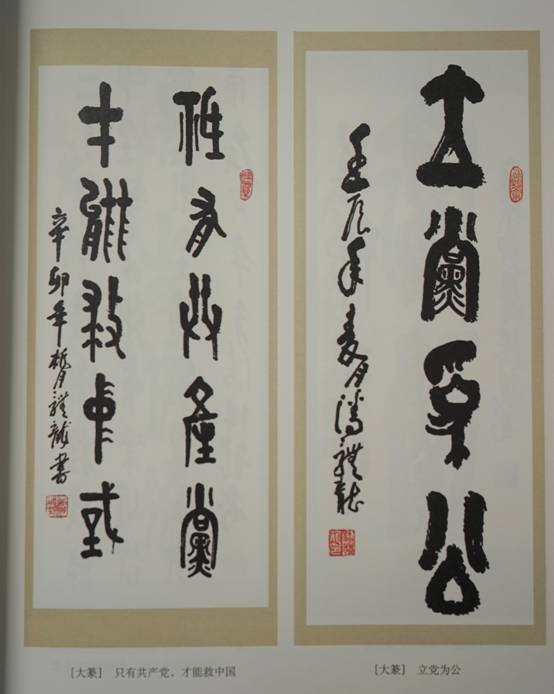 立黨為公
壬辰年夏月潘禮龍
有共產黨
才能救中國
辛卯年月禮龍書
[大篆] 只有共产党、才能救中国
[大篆] 立党为公